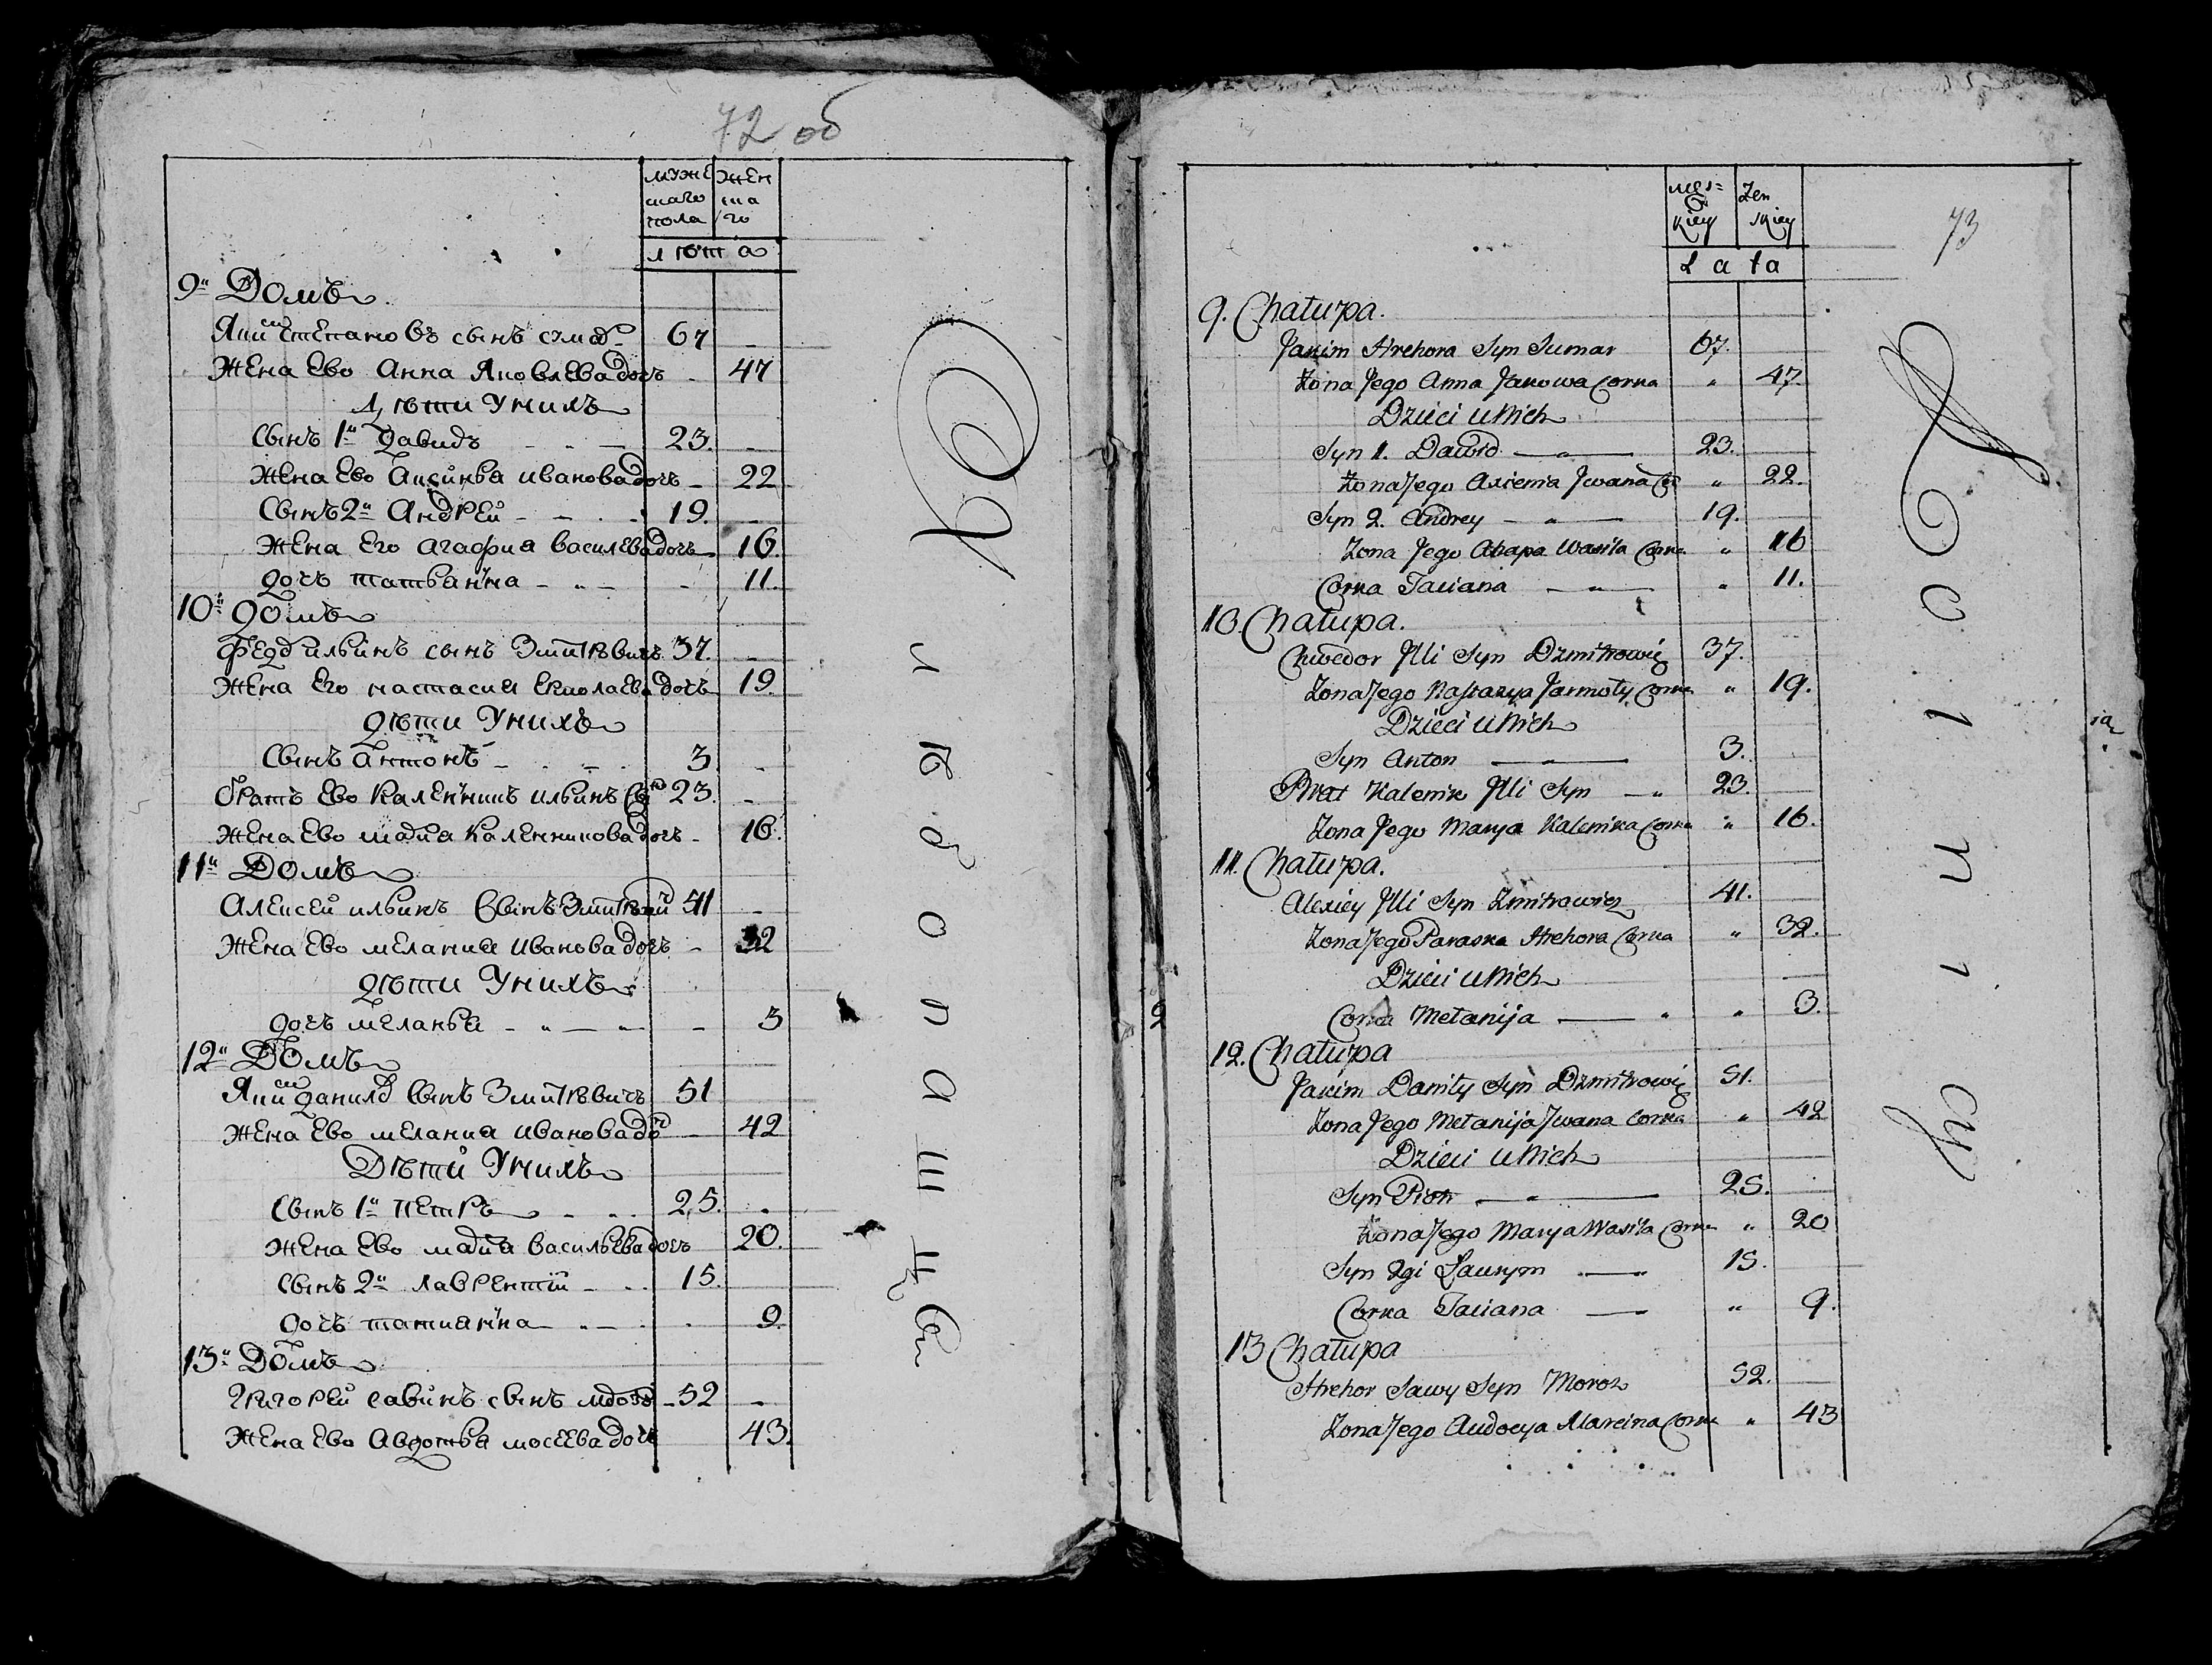 72 об
мужескаго пола
женскаго
лѣта
9й Домъ
Яким Степановъ сынъ сумаръ 67 -
Жена Ево Анна Яковлева дочь - 47
Дѣти Унихъ
Сынъ 1й Давидъ - „ - 23. -
Жена Ево Аксинья Иванова дочь - 22
Сынъ 2й Андрей - - . - 19. -
Жена Его Агафиа Василева дочь 16.
дочь татьянна - „ - - 11.
10й домъ
Федор ильинъ сынъ Змитрѣвичъ 37. -
Жена Его настасиа дочь 19.
дѣти Унихъ
Сынъ антонъ - . - . 3 -
братъ Ево Каленникъ ильинъ сынъ 23. -
Жена Ево мария Каленникова дочь - 16.
11й Домъ
Алексей ильинъ Сынъ Змитрѣвич 41 -
Жена Ево меланиа Иванова дочь - 32
дѣти Унихъ
дочь меланья - „ - „ - 3
12й Домъ
Яким данилов Сынъ Змитрѣвичъ 51
Жена Ево меланиа Иванова доч - 42
Дѣти Унихъ
Сынъ 1й Петръ - . . 25. .
Жена Ево мария васильева дочь 20.
Сынъ 2й лаврентий - . . 15.
дочь татианна - „ - . . 9.
13й Домъ
Григорей савинъ сынъ - 52 -
Жена Ево Авдотья мосеева дочь 43.
К лѣбопашцы
73
męskiey
żenskiey
Lata
9. Chałupa.
Jakim Hrehora Syn Sumar 67.
Zona Jego Anna Jakowa Corka „ 47.
Dzieci u Nich
Syn 1. Dawid — „ — 23.
Zona Jego Axienia Jwana Cor „ 22.
Syn 2. Andrey — „ — 19.
Zona Jego Ahapa Wasila Corka „ 16
Corka Taciana — „ — „ 11.
10 Chałupa.
Chwedor Jlli Syn Dzmitrowicz 37.
Zona Jego Nastazya Jarmoły Corka „ 19.
Dzieci u Nich
Syn Anton — 3.
Brat Kalenik Jlli Syn — „ 23.
Zona Jego Marya Kalenika Corka „ 16.
11. Chałupa.
Alexiey Jlli Syn Zmitrowicz 41.
Zona Jego Paraska Hrehora Corka „ 32.
Dzieci u Nich
Corka Mełanija — „ „ 3.
12. Chałupa
Jakim Daniły Syn Dzmitrowicz 51.
Zona Jego Mełanija Jwana Corka „ 42
Dzieci u Nich
Syn Piotr — „ — 25.
Zona Jego Marya Wasila Corka „ 20
Syn 2gi Ławryn — 15.
Corka Taciana — „ 9.
13 Chałupa
Hrehor Sawy Syn Moroz 52.
Zona Jego Audocya Marcina Corka „ 43
Rolnicy